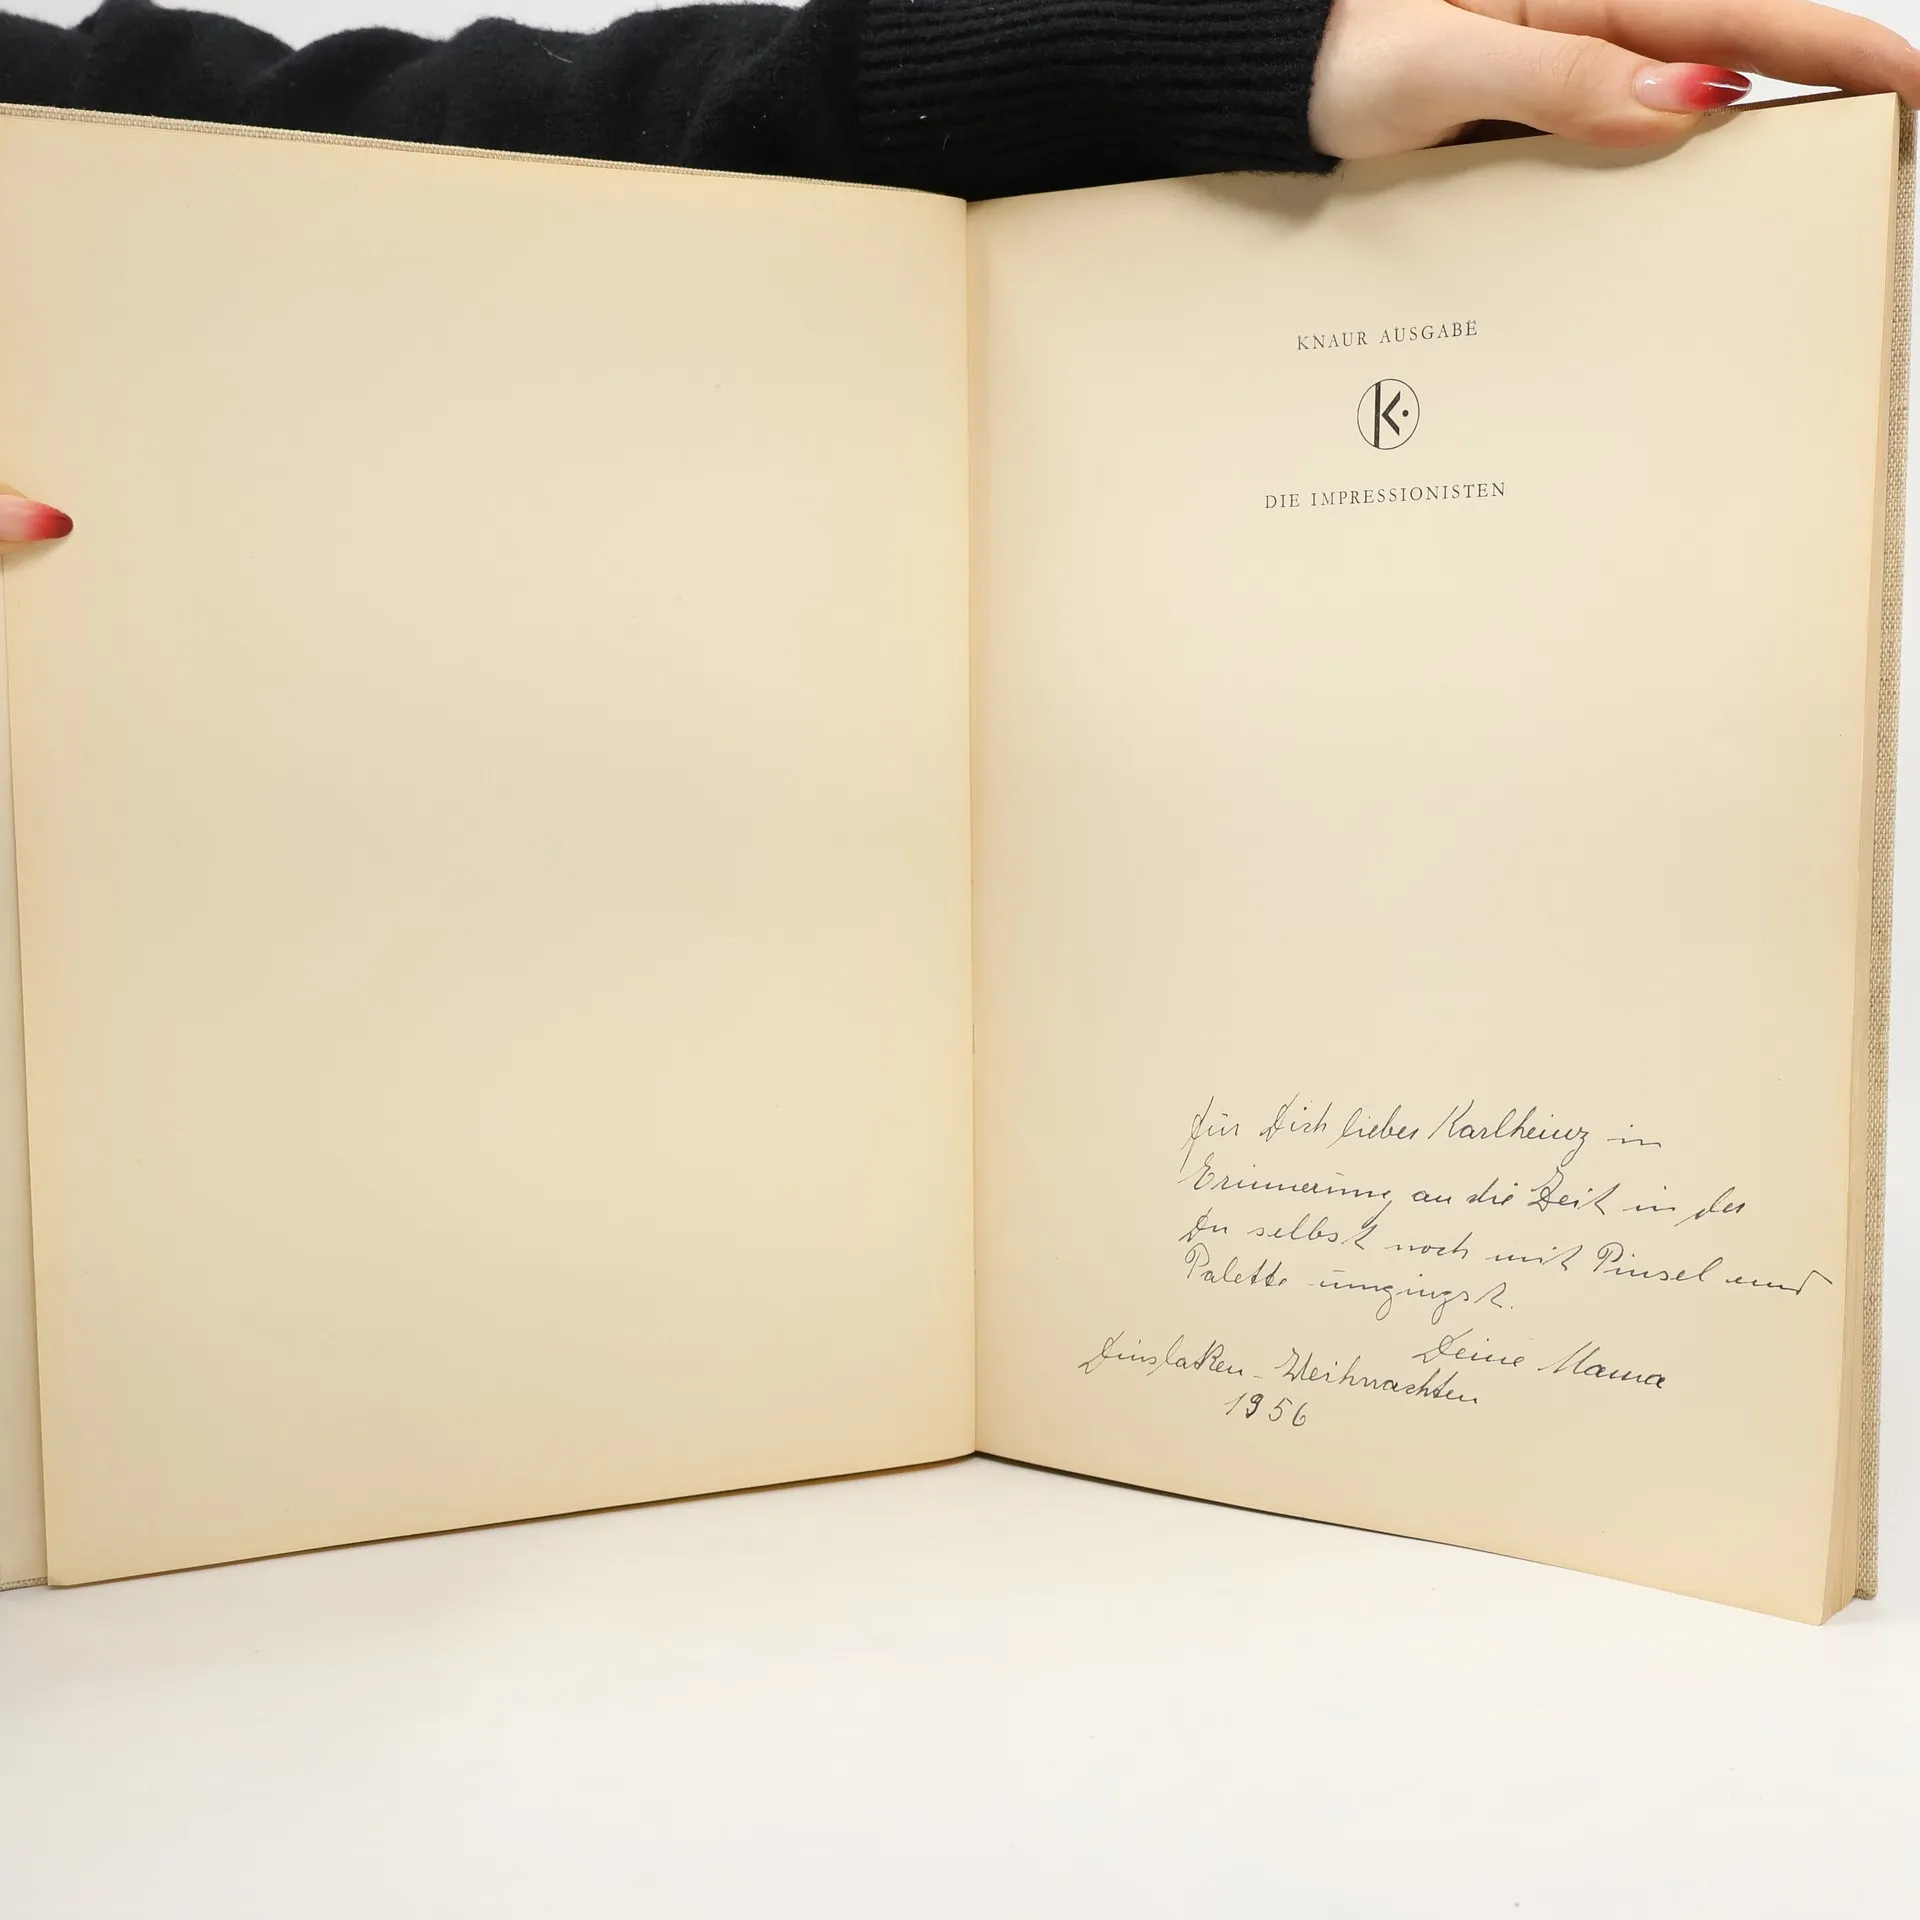 KNAUR AUSGABE
K
DIE IMPRESSIONISTEN
für Dich lieber Karlheinz in
Erinnerung an die Zeit in der
Du selbst noch mit Pinsel und
Palette umgingst.
Deine Mama
Dinslaken - Weihnachten
1956